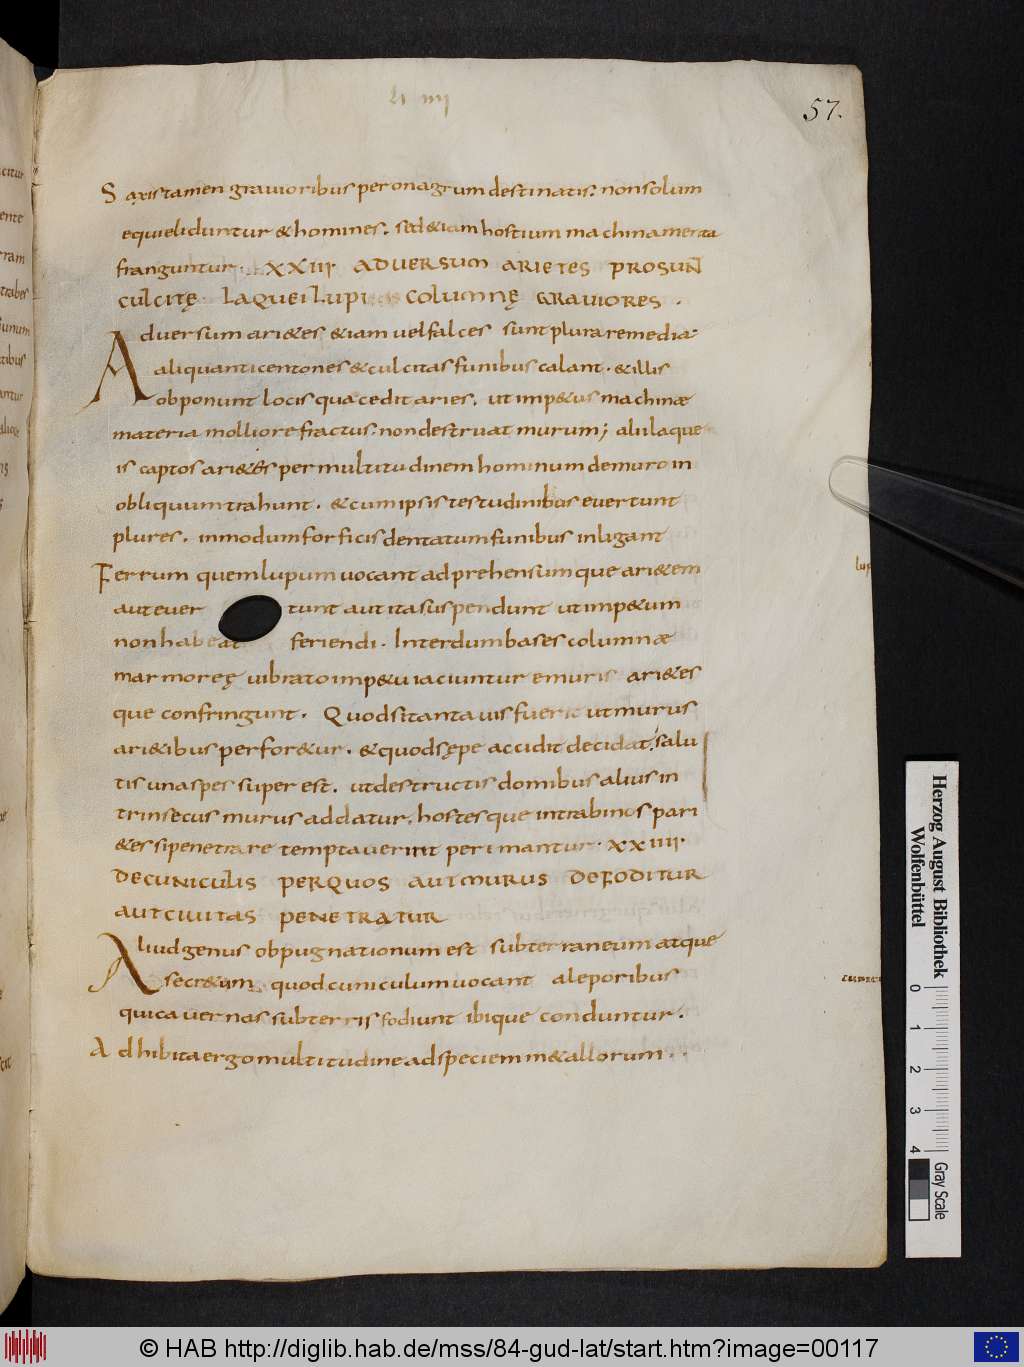 Li IIII
57.
Saxis tamen grauioribus per onagrum destinatis. non solum
equi eliduntur & homines. sed & iam hostium machinamenta
franguntur. XXIII. ADUERSUM ARIETES PROSUNT
CULCITĘ LAQUEI LUPI COLUMNĘ GRAUIORES.
Aduersum ari&es & iam uel falces sunt plura remedia.
aliquanti centones & culcitas funibus calant. & illis
obponunt locis qua cedit aries. ut imp&us machinæ
materia molliore fractus. non destruat murum; alii laque
is captos ari&es per multitudinem hominum de muro in
obliquum trahunt. & cum ipsis testudinibus euertunt
plures. in modum forficis dentatum funibus inligant
Ferrum quem lupum uocant adprehensumque ari&em
aut euertunt aut ita suspendunt ut imp&um
non habeat feriendi. Interdum bases columnæ
marmoreę uibrato imp&u iaciuntur e muris ari&es
que confringunt. Quod si tanta uis fuerit ut murus
ari&ibus perfor&ur. & quod sępe accidit decidat. salu
tis una spes super est. ut destructis domibus alius in
trinsecus murus addatur. hostesque intra binos pari
&es si penetrare temptauerint perimantur. XXIIII.
DE CUNICULIS PER QUOS AUT MURUS DEFODITUR
AUT CIUITAS PENETRATUR
Aliud genus obpugnationum est subterraneum atque
secr&um quod cuniculum uocant a leporibus
qui cauernas sub terris fodiunt ibique conduntur.
Adhibita ergo multitudine ad speciem in & allorum
Herzog August Bibliothek
Wolfenbüttel
0 1 2 3 4
Gray Scale
© HAB http://diglib.hab.de/mss/84-gud-lat/start.htm?image=00117